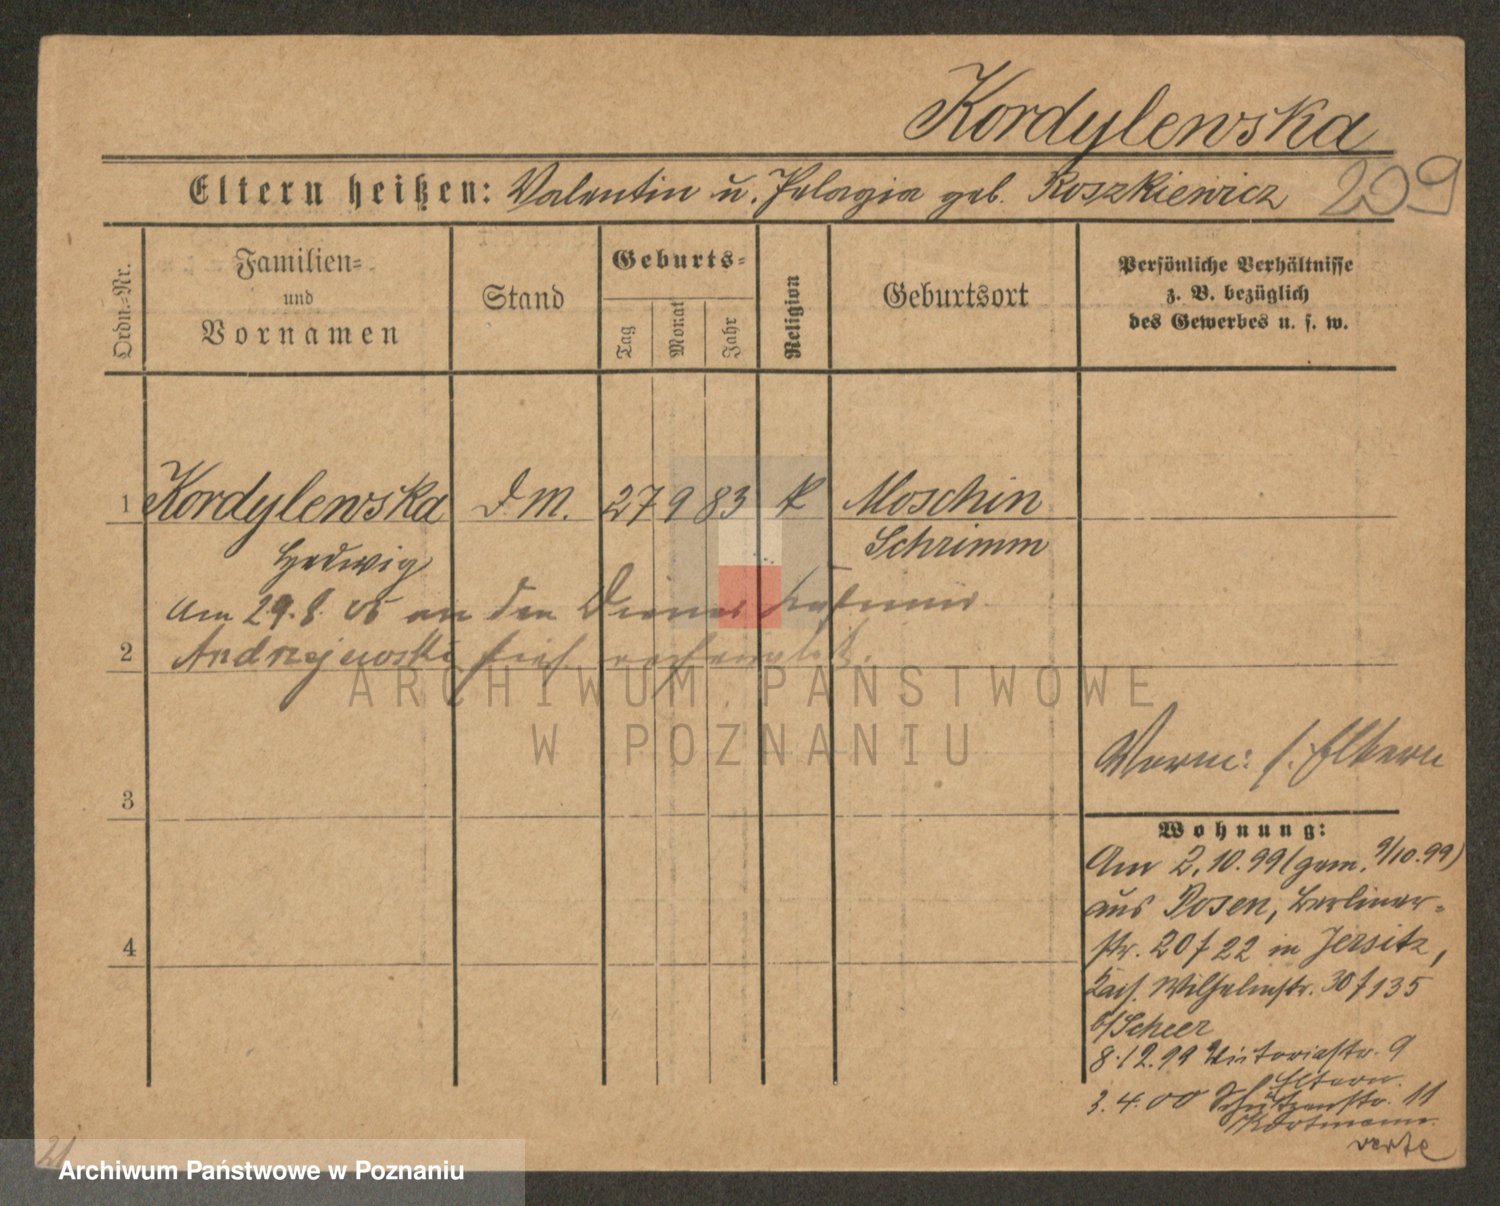 Kordylewska
Eltern heißen: Valentin u. Pelagia geb. Roszkiewicz
209
Ordn.-Nr.
Familien-
und
Vornamen
Stand
Geburts-
Tag
Monat
Jahr
Religion
Geburtsort
Persönliche Verhältnisse
z. B. bezüglich
des Gewerbes u. s. w.
1 Kordylewska D. M. 27 9 83 k Moschin
Hedwig Schrimm
Am 29.8. 05 an den Diener
2 Andrzejewski sich verheiratet.
ARCHIWUM PAŃSTWOWE
W POZNANIU
3
4
Verm: s. Eltern
Wohnung:
Am 2.10.99 (gem. 9/10.99)
aus Posen, Berliner-
str. 20 f 22 in Jersitz,
Kais. Wilhelmstr. 30 f 135
b/Scheer
8.12.99 Victoriastr. 9
Eltern.
3.4.00 Schützenstr. 11
Kortmann.
verte
21
Archiwum Państwowe w Poznaniu